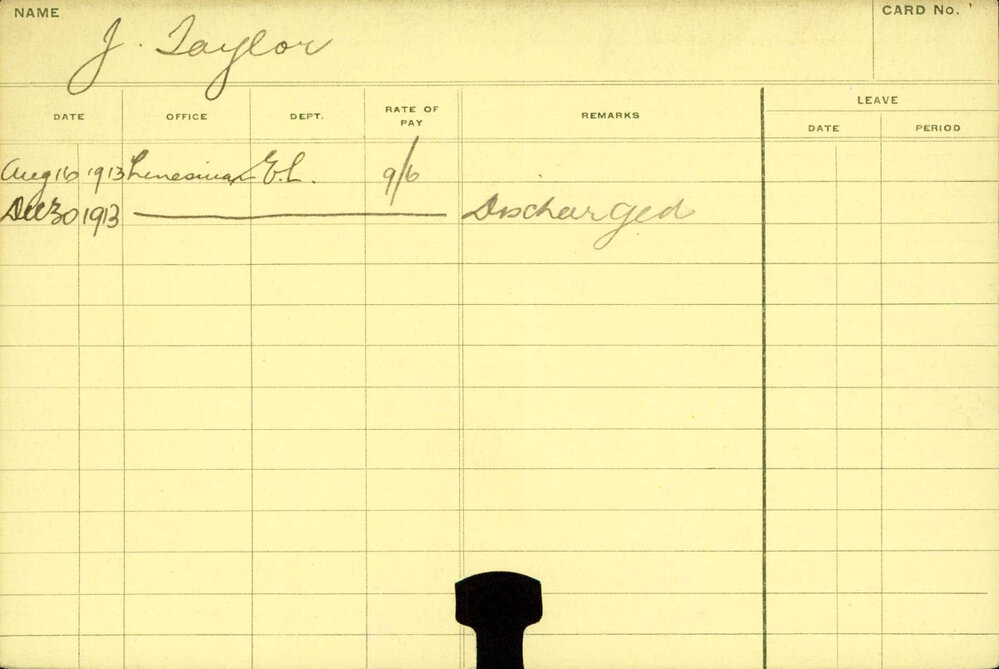 NAME J. Taylor CARD No.
DATE OFFICE DEPT. RATE OF PAY REMARKS LEAVE
DATE PERIOD
Aug 16 1913 Linesman E.L. 9/6
Dec 30 1913 Discharged